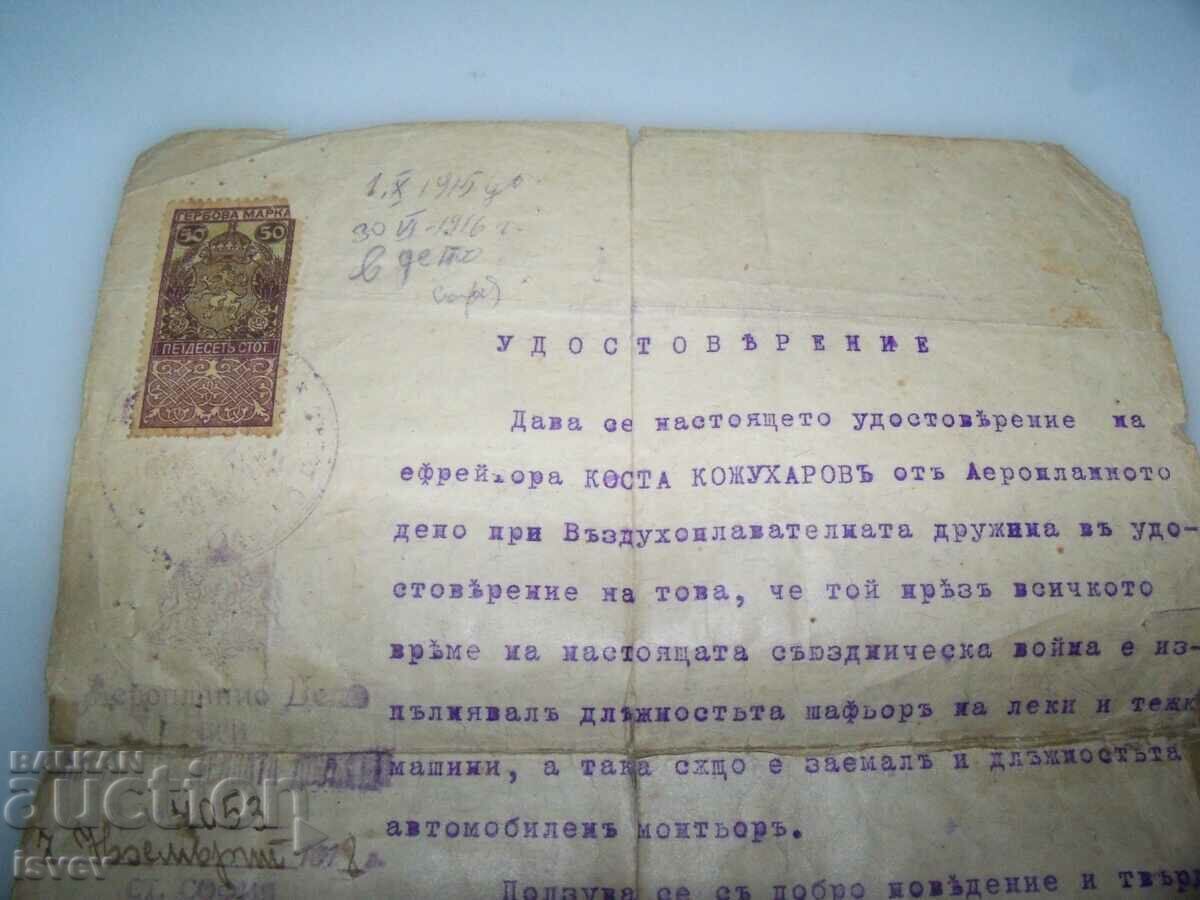 ГЕРБОВА МАРКА
50 50
ПЕТДЕСЕТЬ СТОТ
1.X 1915 до
30 VI-1916 г.
в дето
УДОСТОВѢРЕНИЕ
Дава се настоящето удостовѣрение на
ефрейтора КОСТА КОЖУХАРОВЪ отъ Аеропланното
депо при Въздухоплавателната дружина въ удо-
стовѣрение на това, че той прѣзъ всичкото
врѣме на настоящата съюзническа война е из-
пълнявалъ длѫжностьта шафьоръ на леки и тежк
машини, а така сѫщо е заемалъ и длѫжностьта
автомобиленъ монтьоръ.
Ползува се съ добро поведение и твърд
Аеропланно Депо
4053
7 Ноемврий 1918 г.
СТ. СОФИЯ
BALKAN
auction
isvev